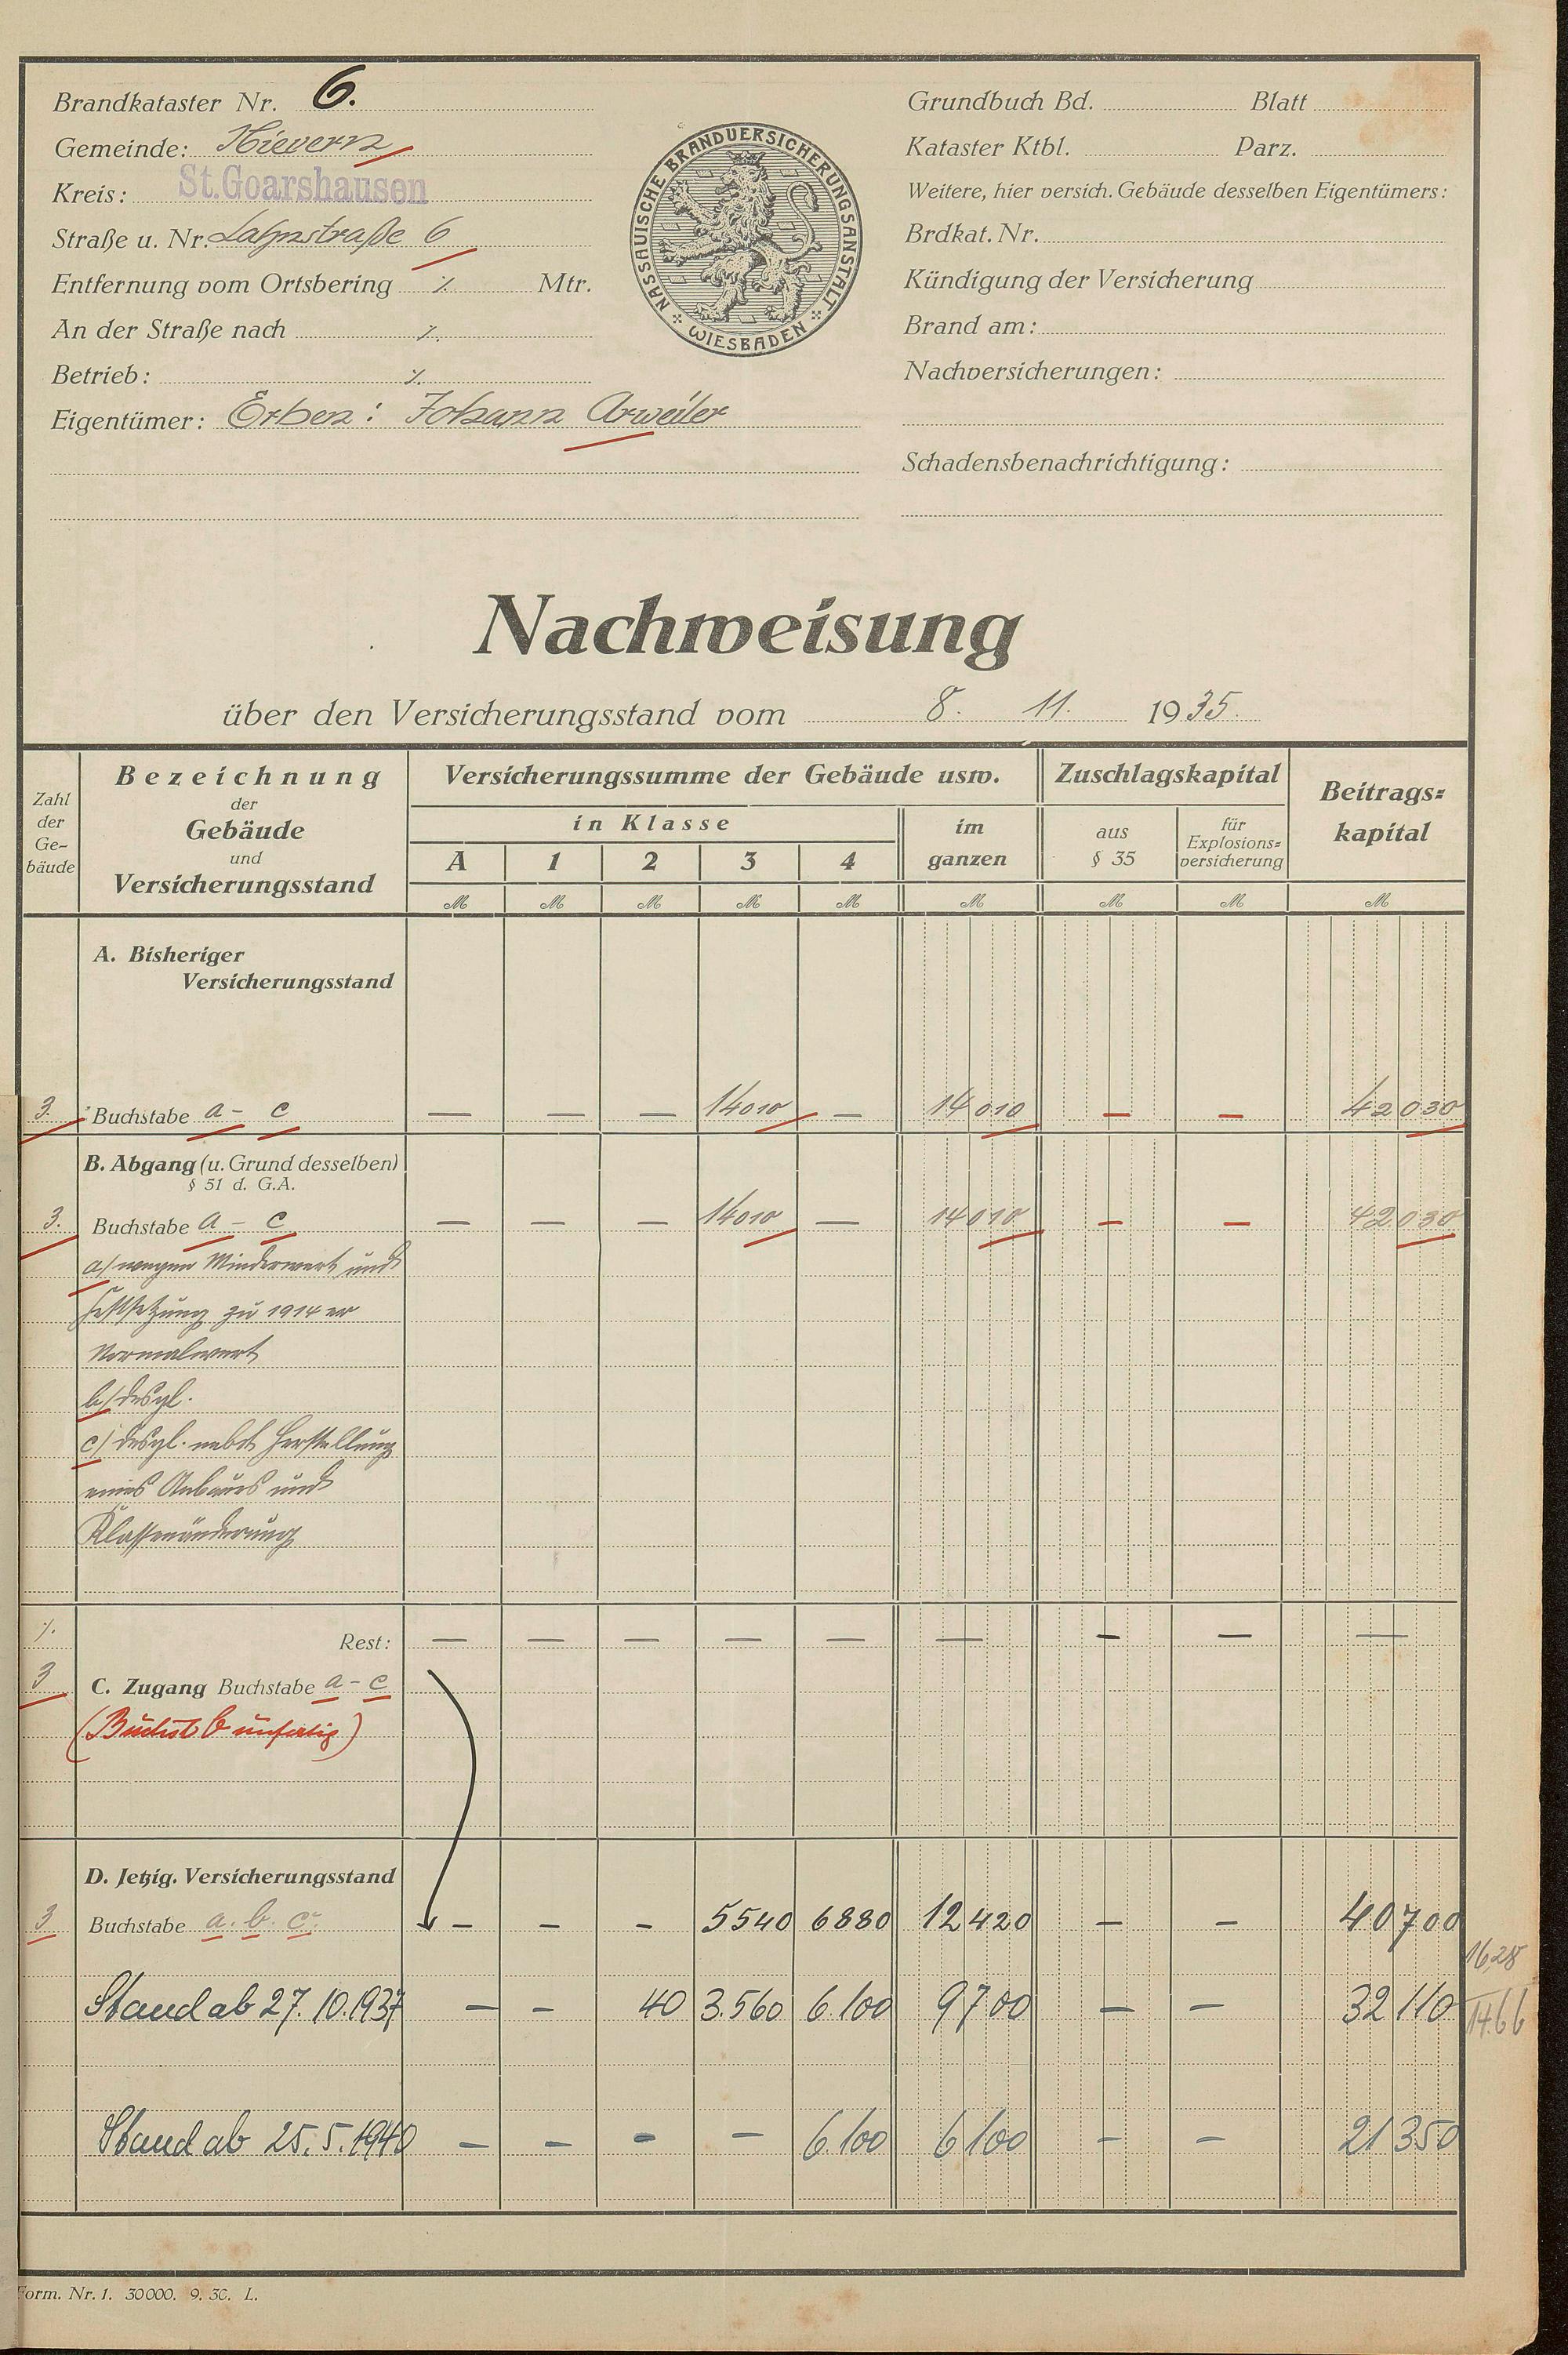 Brandkataster Nr. 6.
Gemeinde: Nievern
Kreis: St. Goarshausen
Straße u. Nr. Lahnstraße 6
Entfernung vom Ortsbering ⁒ Mtr.
An der Straße nach ⁒
Betrieb: ⁒
Eigentümer: Erben: Johann Arweiler
NASSAUISCHE BRANDVERSICHERUNGSANSTALT
WIESBADEN
Grundbuch Bd. Blatt
Kataster Ktbl. Parz.
Weitere, hier versich. Gebäude desselben Eigentümers:
Brdkat. Nr.
Kündigung der Versicherung
Brand am:
Nachversicherungen:
Schadensbenachrichtigung:
Nachweisung
über den Versicherungsstand vom 8. 11. 1935.
Zahl der Ge-bäude
Bezeichnung der Gebäude und Versicherungsstand
Versicherungssumme der Gebäude usw.
in Klasse
A 1 2 3 4
im ganzen
Zuschlagskapital
aus § 35
für Explosions-versicherung
Beitrags-kapital
M M M M M M M M M
A. Bisheriger
Versicherungsstand
3. Buchstabe a - c — — — 14010 — 14010 — — 42030
B. Abgang (u. Grund desselben)
§ 51 d. G.A.
3. Buchstabe a - c — — — 14010 — 14010 — — 42030
a/ wegen Minderwert und
Festsetzung zu 1914 er
Normalwert
b/ desgl.
c/ desgl. nebst Herstellung
eines Anbaues und
Klassenänderung
⁒ Rest: — — — — — — — — —
3 C. Zugang Buchstabe a - c
(Buchst b unfertig)
D. Jetzig. Versicherungsstand
3 Buchstabe a. b. c. — — — 5540 6880 12420 — — 40700
16,28
Stand ab 27.10.1937 — — 40 3.560 6.100 9700 — — 32110
14.66
Stand ab 25.5.1940 — — — — 6.100 6100 — — 21350
Form. Nr. 1. 30000. 9. 30. L.